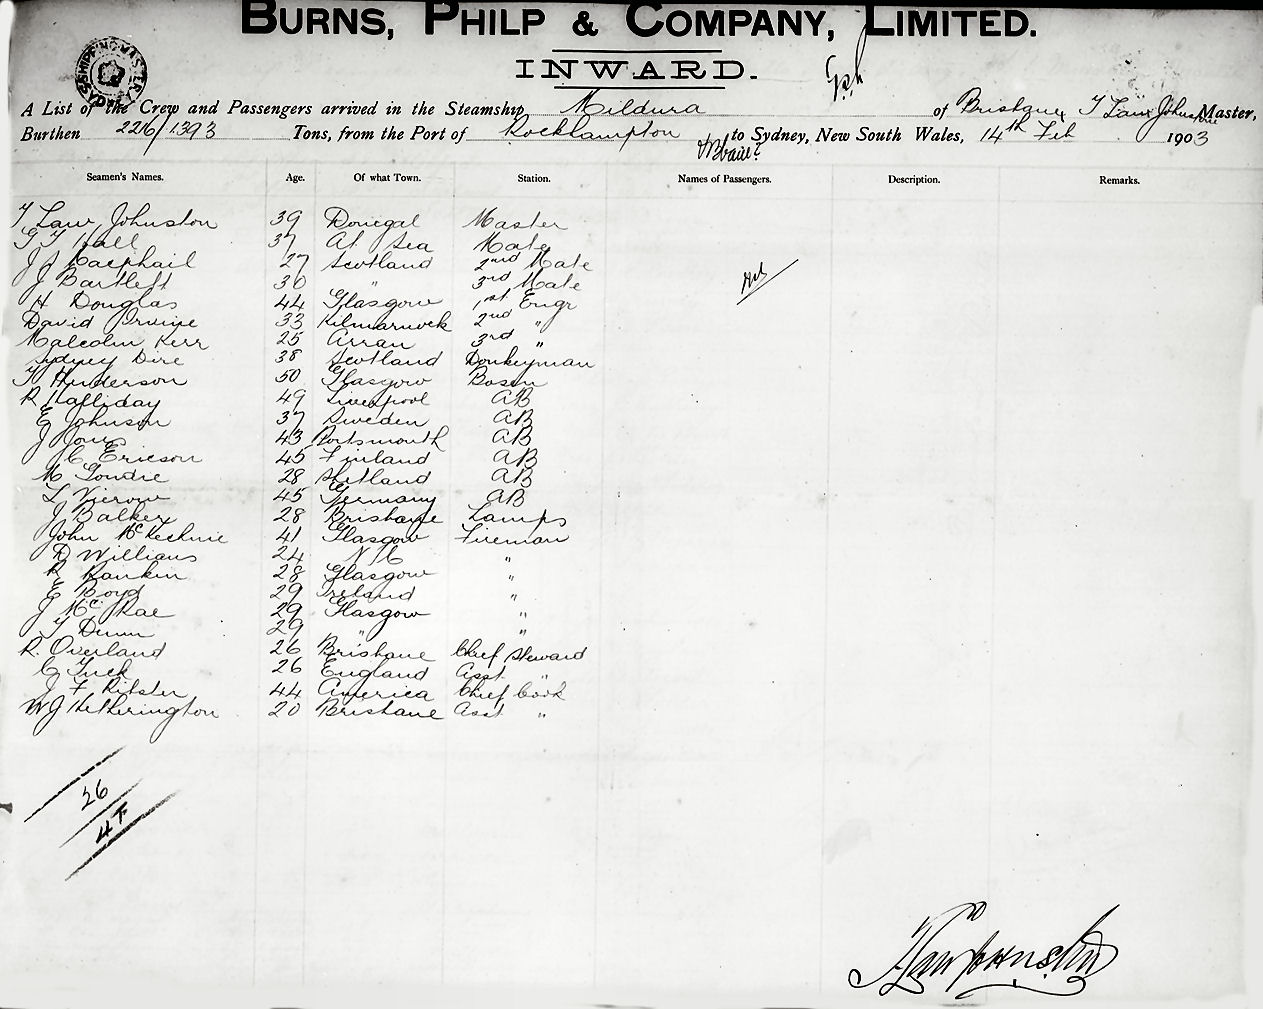 BURNS, PHILP & COMPANY, LIMITED.
INWARD.
SHIPPING MASTER
A List of the Crew and Passengers arrived in the Steamship Mildura of Brisbane, T Law Johnston Master,
Burthen 2216/1393 Tons, from the Port of Rockhampton to Sydney, New South Wales, 14th Feb 1903
Seamen's Names. Age. Of what Town. Station. Names of Passengers. Description. Remarks.
T Law Johnston 39 Donegal Master
G T Hall 37 At Sea Mate
J J Macphail 27 Scotland 2nd Mate
J Bartlett 30 " 3rd Mate
H Douglas 44 Glasgow 1st Engr
David Irvine 33 Kilmarnock 2nd "
Malcolm Kerr 25 Arran 3rd "
Sydney Dire 38 Scotland Donkeyman
T Henderson 50 Glasgow Bosun
R Halliday 49 Liverpool AB
E Johnson 37 Sweden AB
J Jous 43 Portsmouth AB
J C Ericson 45 Finland AB
M Goudie 28 Shetland AB
L Vierow 45 Germany AB
J Balker 28 Brisbane Lamps
John McKechnie 41 Glasgow Fireman
D Williams 24 N C "
R Rankin 28 Glasgow "
E Boyd 29 Ireland "
J McRae 29 Glasgow "
T Dunn 29 " "
R. Overland 26 Brisbane Chief Steward
C Tuck 26 England Asst "
J F Ritster 44 America Chief Cook
W J Hetherington 20 Brisbane Asst "
26
4F
T Law Johnston